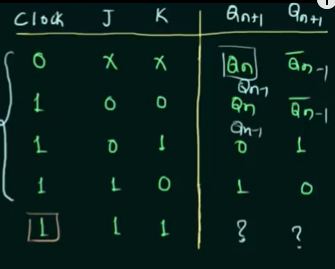 Clock J K Qn+1 Q̅n+1
0 X X Qn Q̅n-1
Qn-1
1 0 0 Qn Q̅n-1
Qn-1
1 0 1 0 1
1 1 0 1 0
1 1 1 ? ?